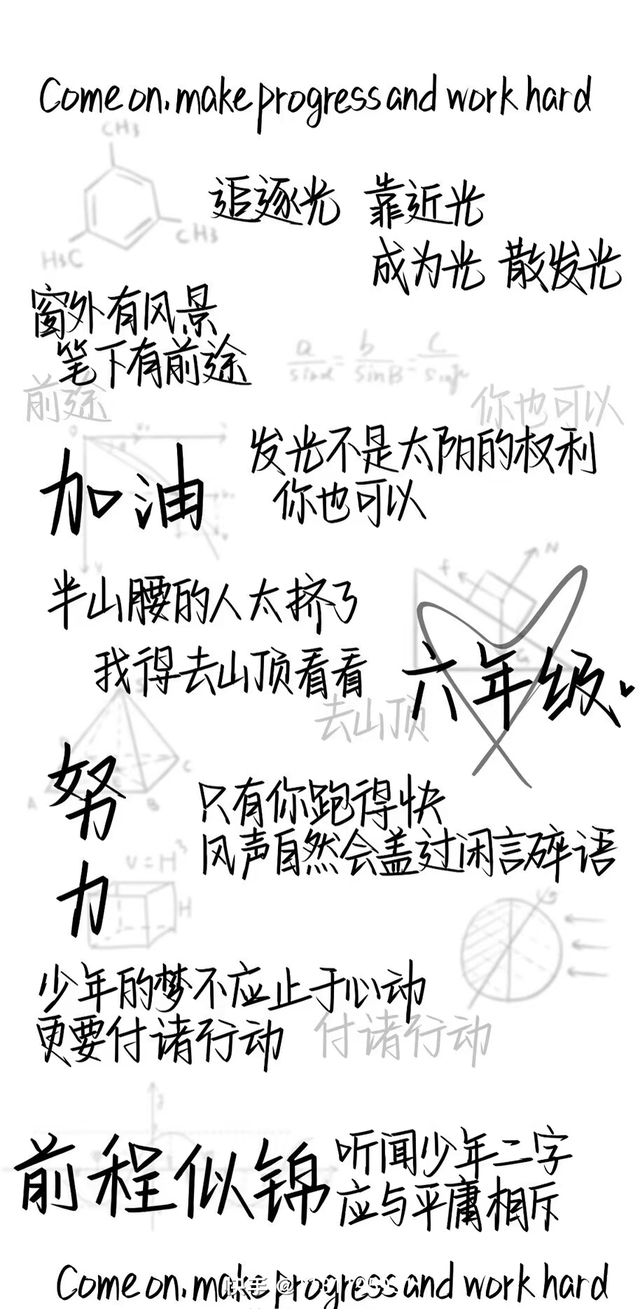 Come on, make progress and work hard
CH3
追逐光 靠近光
CH3
H3C
成为光 散发光
窗外有风景
笔下有前途
a/sinα = b/sinB = c/
前途
你也可以
发光不是太阳的权利
加油
你也可以
N
F
半山腰的人太挤了
G
我得去山顶看看
六年级
去山顶
努
A
B
C
只有你跑得快
风声自然会盖过闲言碎语
V=H³
力
H
少年的梦不应止于心动
更要付诸行动
付诸行动
前程似锦
听闻少年二字
应与平庸相斥
Come on, make progress and work hard
快手